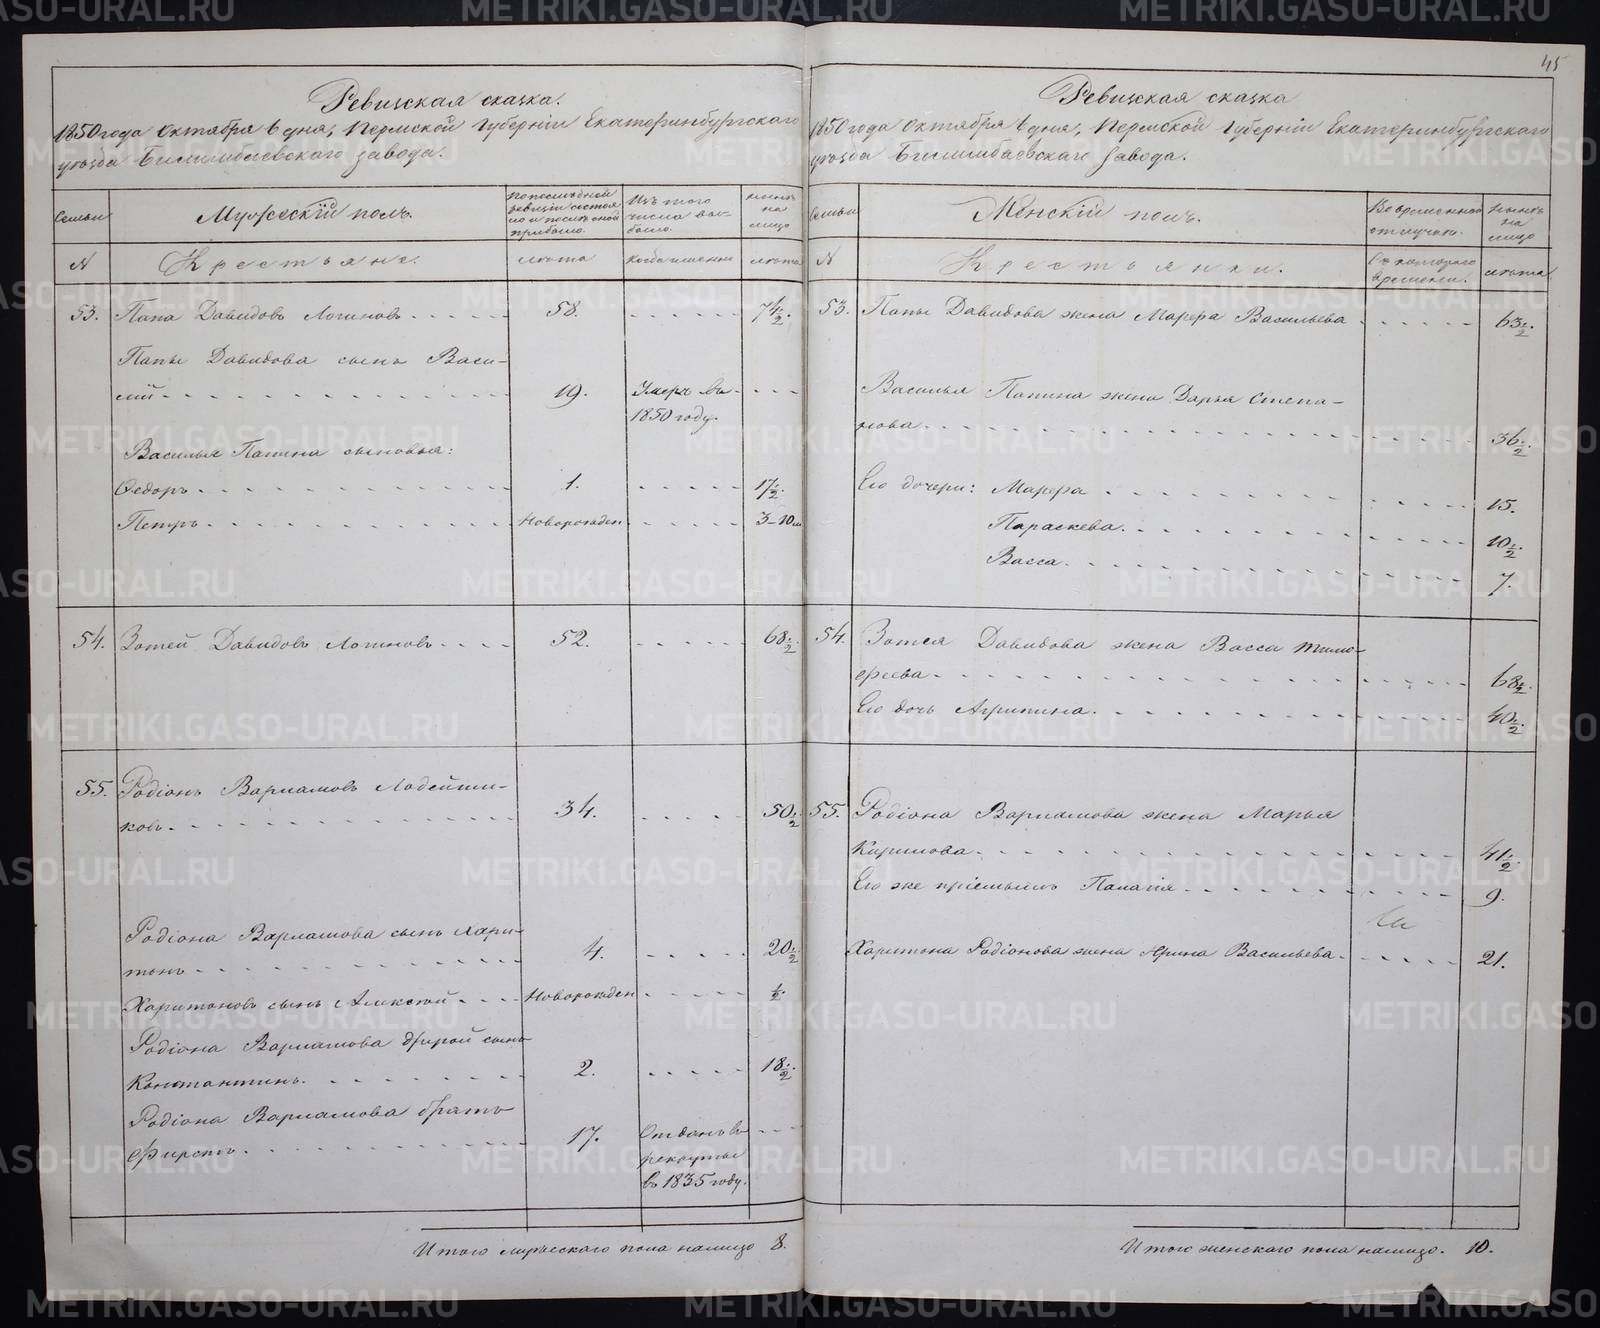 45
Ревизская сказка.
1850 года Октября 6 дня, Пермской Губерніи Екатеринбургскаго
уѣзда Билимбаевскаго завода.
Семьи
Мужескій полъ.
По послѣдней ревизіи состояло и послѣ оной прибыло.
Изъ того числа выбыло.
Нынѣ на лицо
N
Крестьяне.
лѣта
когда именно
лѣта
53. Папа Давидовъ Логиновъ 58. 74 1/2.
Папы Давидова сынъ Васи-
лій 19. Умеръ въ
1850 году.
Василья Папина сыновья:
Ѳедоръ 1. 17 1/2.
Петръ Новорожден 3-10 м
54. Зотей Давидовъ Логиновъ 52. 68 1/2
55. Родіонъ Варламовъ Лодейщи-
ковъ. 34. 50 1/2
Родіона Варламова сынъ Хари-
тонъ 4. 20 1/2
Харитоновъ сынъ Алексѣй Новорожден 1/2.
Родіона Варламова другой сынъ
Константинъ. 2. 18 1/2.
Родіона Варламова братъ
Фирстъ. 17. Отданъ въ
рекруты
въ 1835 году.
Итого мужескаго пола налицо 8.
Ревизская сказка
1850 года Октября 6 дня, Пермской Губерніи Екатеринбургскаго
уѣзда Билимбаевскаго Завода.
Семьи
Женскій полъ.
Во временной отлучкѣ.
Нынѣ на лицо
N
Крестьянки.
Съ котораго времени.
лѣта
53. Папы Давидова жена Марѳа Васильева 63 1/2.
Василья Папина жена Дарья Степа-
нова. 36 1/2.
Его дочери: Марѳа 15.
Параскева. 10 1/2.
Васса. 7.
54. Зотея Давидова жена Васса Тимо-
феева 68 1/2
Его дочь Агрипина. 40 1/2.
55. Родіона Варламова жена Марья
Кирилова. 41 1/2.
Его же пріемышъ Палагія. 9.
Харитона Родіонова жена Ирина Васильева. 21.
Итого женскаго пола налицо. 10.
METRIKI.GASO-URAL.RU